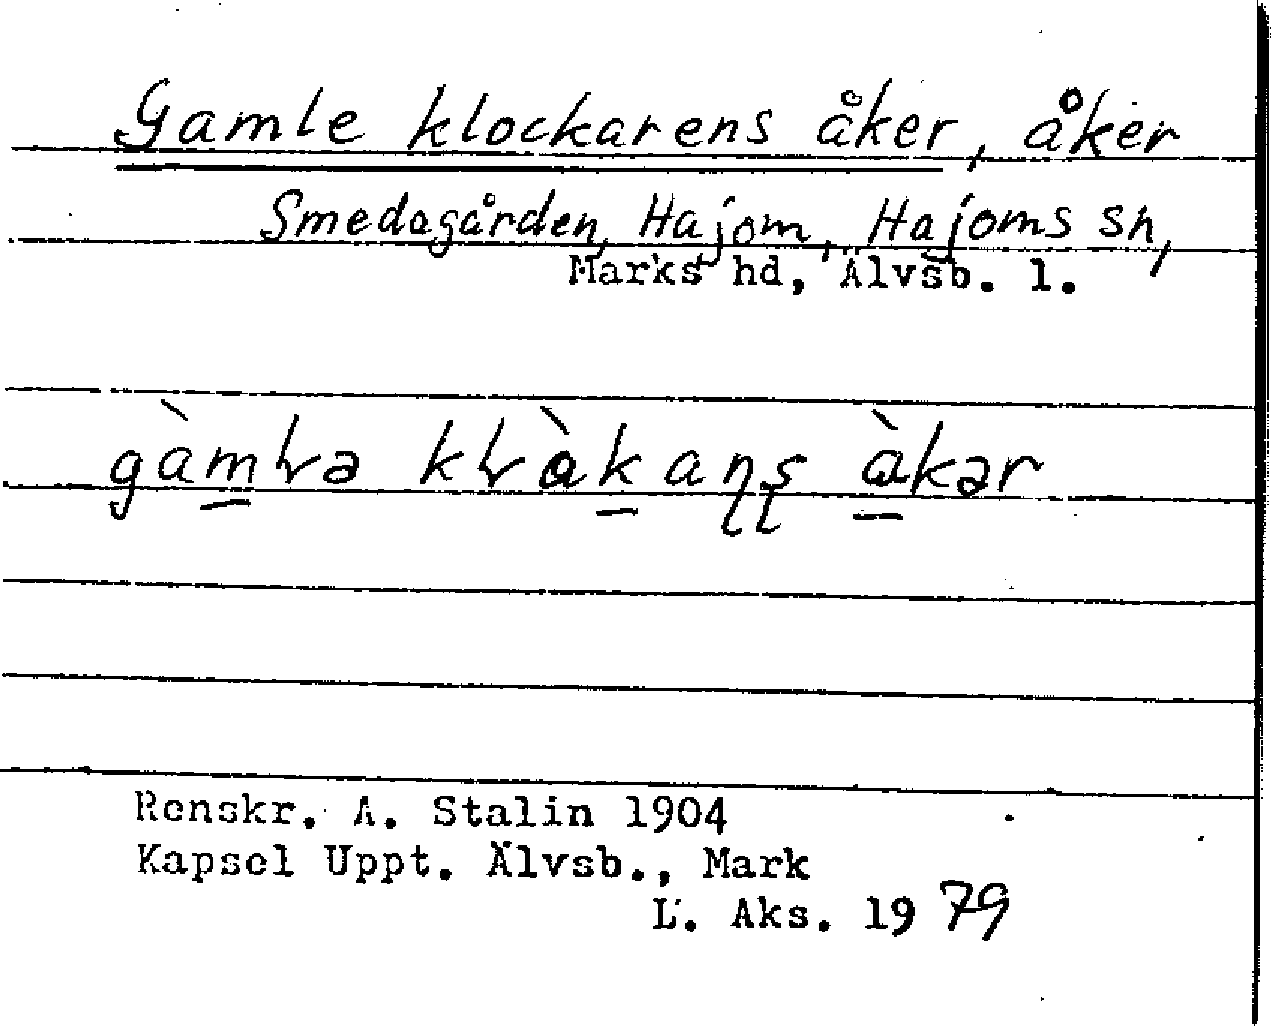 Gamle klockarens åker, åker
Smedagården, Hajom, Hajoms sn,
Marks hd, Älvsb. l.
gàmlə klàkaɳʂ àkər
Renskr. A. Stalin 1904
Kapsel Uppt. Älvsb., Mark
L. Aks. 1979